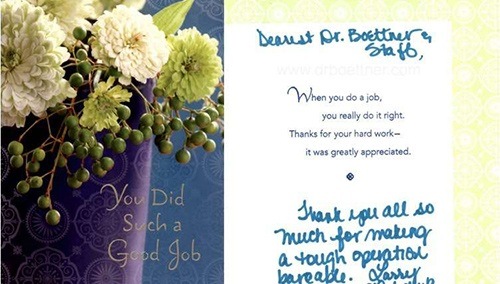 You Did
Such a
Good Job
Dearest Dr. Boettner &
Staff,
www.drboettner.com
When you do a job,
you really do it right.
Thanks for your hard work—
it was greatly appreciated.
Thank you all so
much for making
a tough operation
bareable. Larry